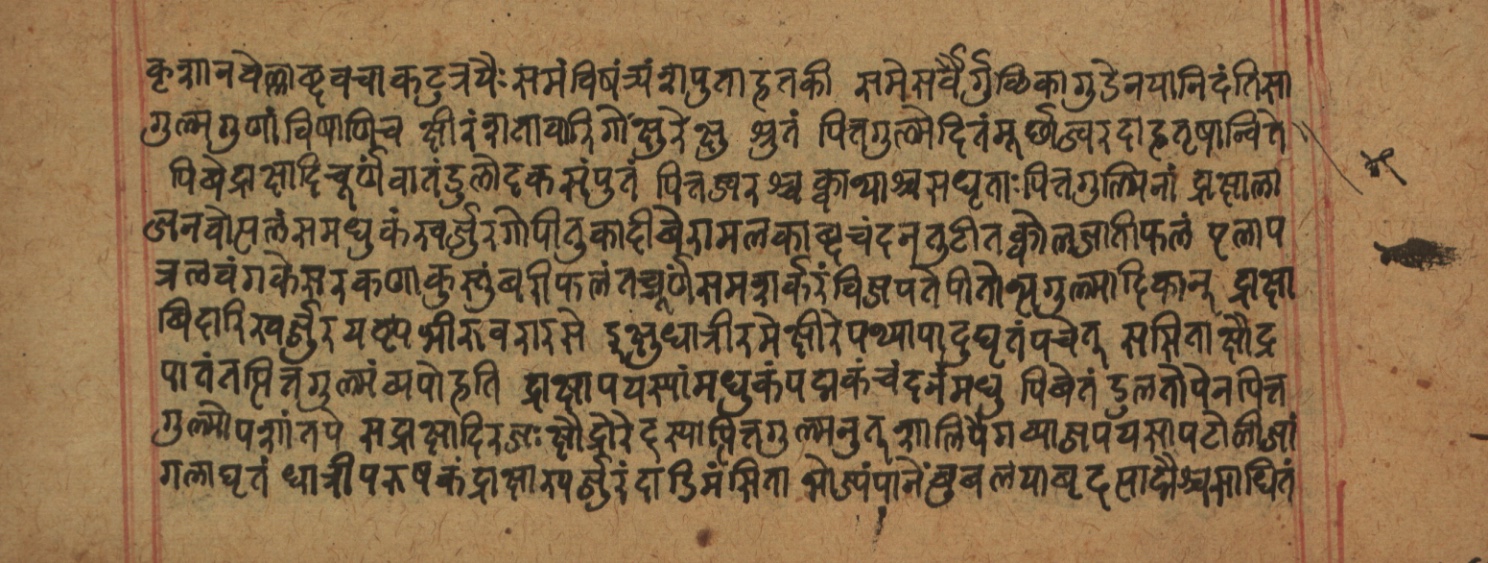 कृशानवेल्लाब्दवचाकटुत्रयैः समं विषं त्र्यंशपुताहृतकी समे सर्वैर्गुळिका गुडेन यानिदंतिसा
गुल्मगुणां विषाणिच क्षीरं शतावारि गोक्षुरेक्षु श्रुतं पित्तगुल्मेदितं मूर्छाज्वरदाहतृषान्विते
पिबेद्राक्षादिचूर्णं वा तंडुलोदकसंपुतं पित्तज्वरश्च क्वाथाश्च सघृताः पित्तगुल्मिनां द्राक्षाला
जनवोत्पलं समधुकं खर्जुरगोपीतुका दीवैरामलकाब्दचंदनतुटीतक्कोलजातीफलं एलाप
त्रलवंगकेसरकणाकुस्तुंबरीफलं तच्चूर्णं समशर्करं विजपते पीतोष्मगुल्मादिकान् द्राक्षा
बिदारिखर्जुरयष्ट्यभीरुवरारसे इक्षुधात्रीरसे क्षीरे पथ्यापादुघृतं पचेत् ससिताक्षौद्र
पातं तत्पित्तगुल्मं व्यपोहति द्राक्षापयस्पां मधुकं पद्मकं चंदनं मधु पिबेतंडुलतोपेन पित्त
गुल्मोपशांतपे सद्राक्षादिरजः क्षौद्रोरेदस्पात्पित्तगुल्मनुत् शालिर्पैगव्याजपयसापटोलीजां
गलाघृतं धात्रीपरूषकं द्राक्षाखर्जुरं दाडिमं सिता भोज्पं पानेंबुबलयाबृदसाद्यैश्चसाधितं